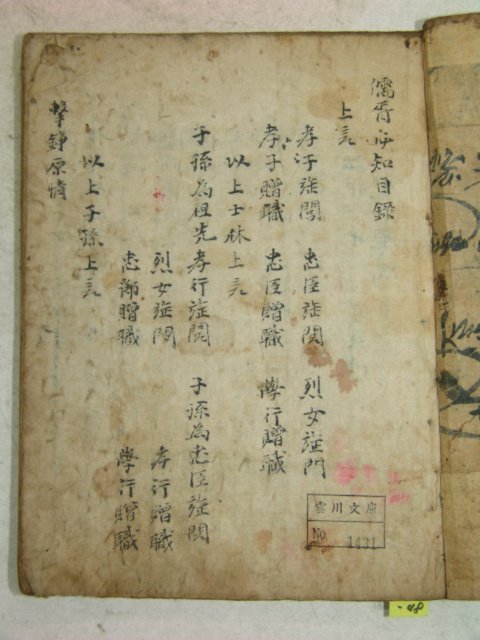 儒胥必知目錄
上言
孝行旌閭 忠臣旌閭 烈女旌門
孝子贈職 忠臣贈職 學行贈職
以上士林上言
子孫為祖先孝行旌閭 子孫為忠臣旌閭
烈女旌閭 孝行贈職
忠節贈職 學行贈職
以上子孫上言
擊錚原情
雲川文庫
No 1431
-48